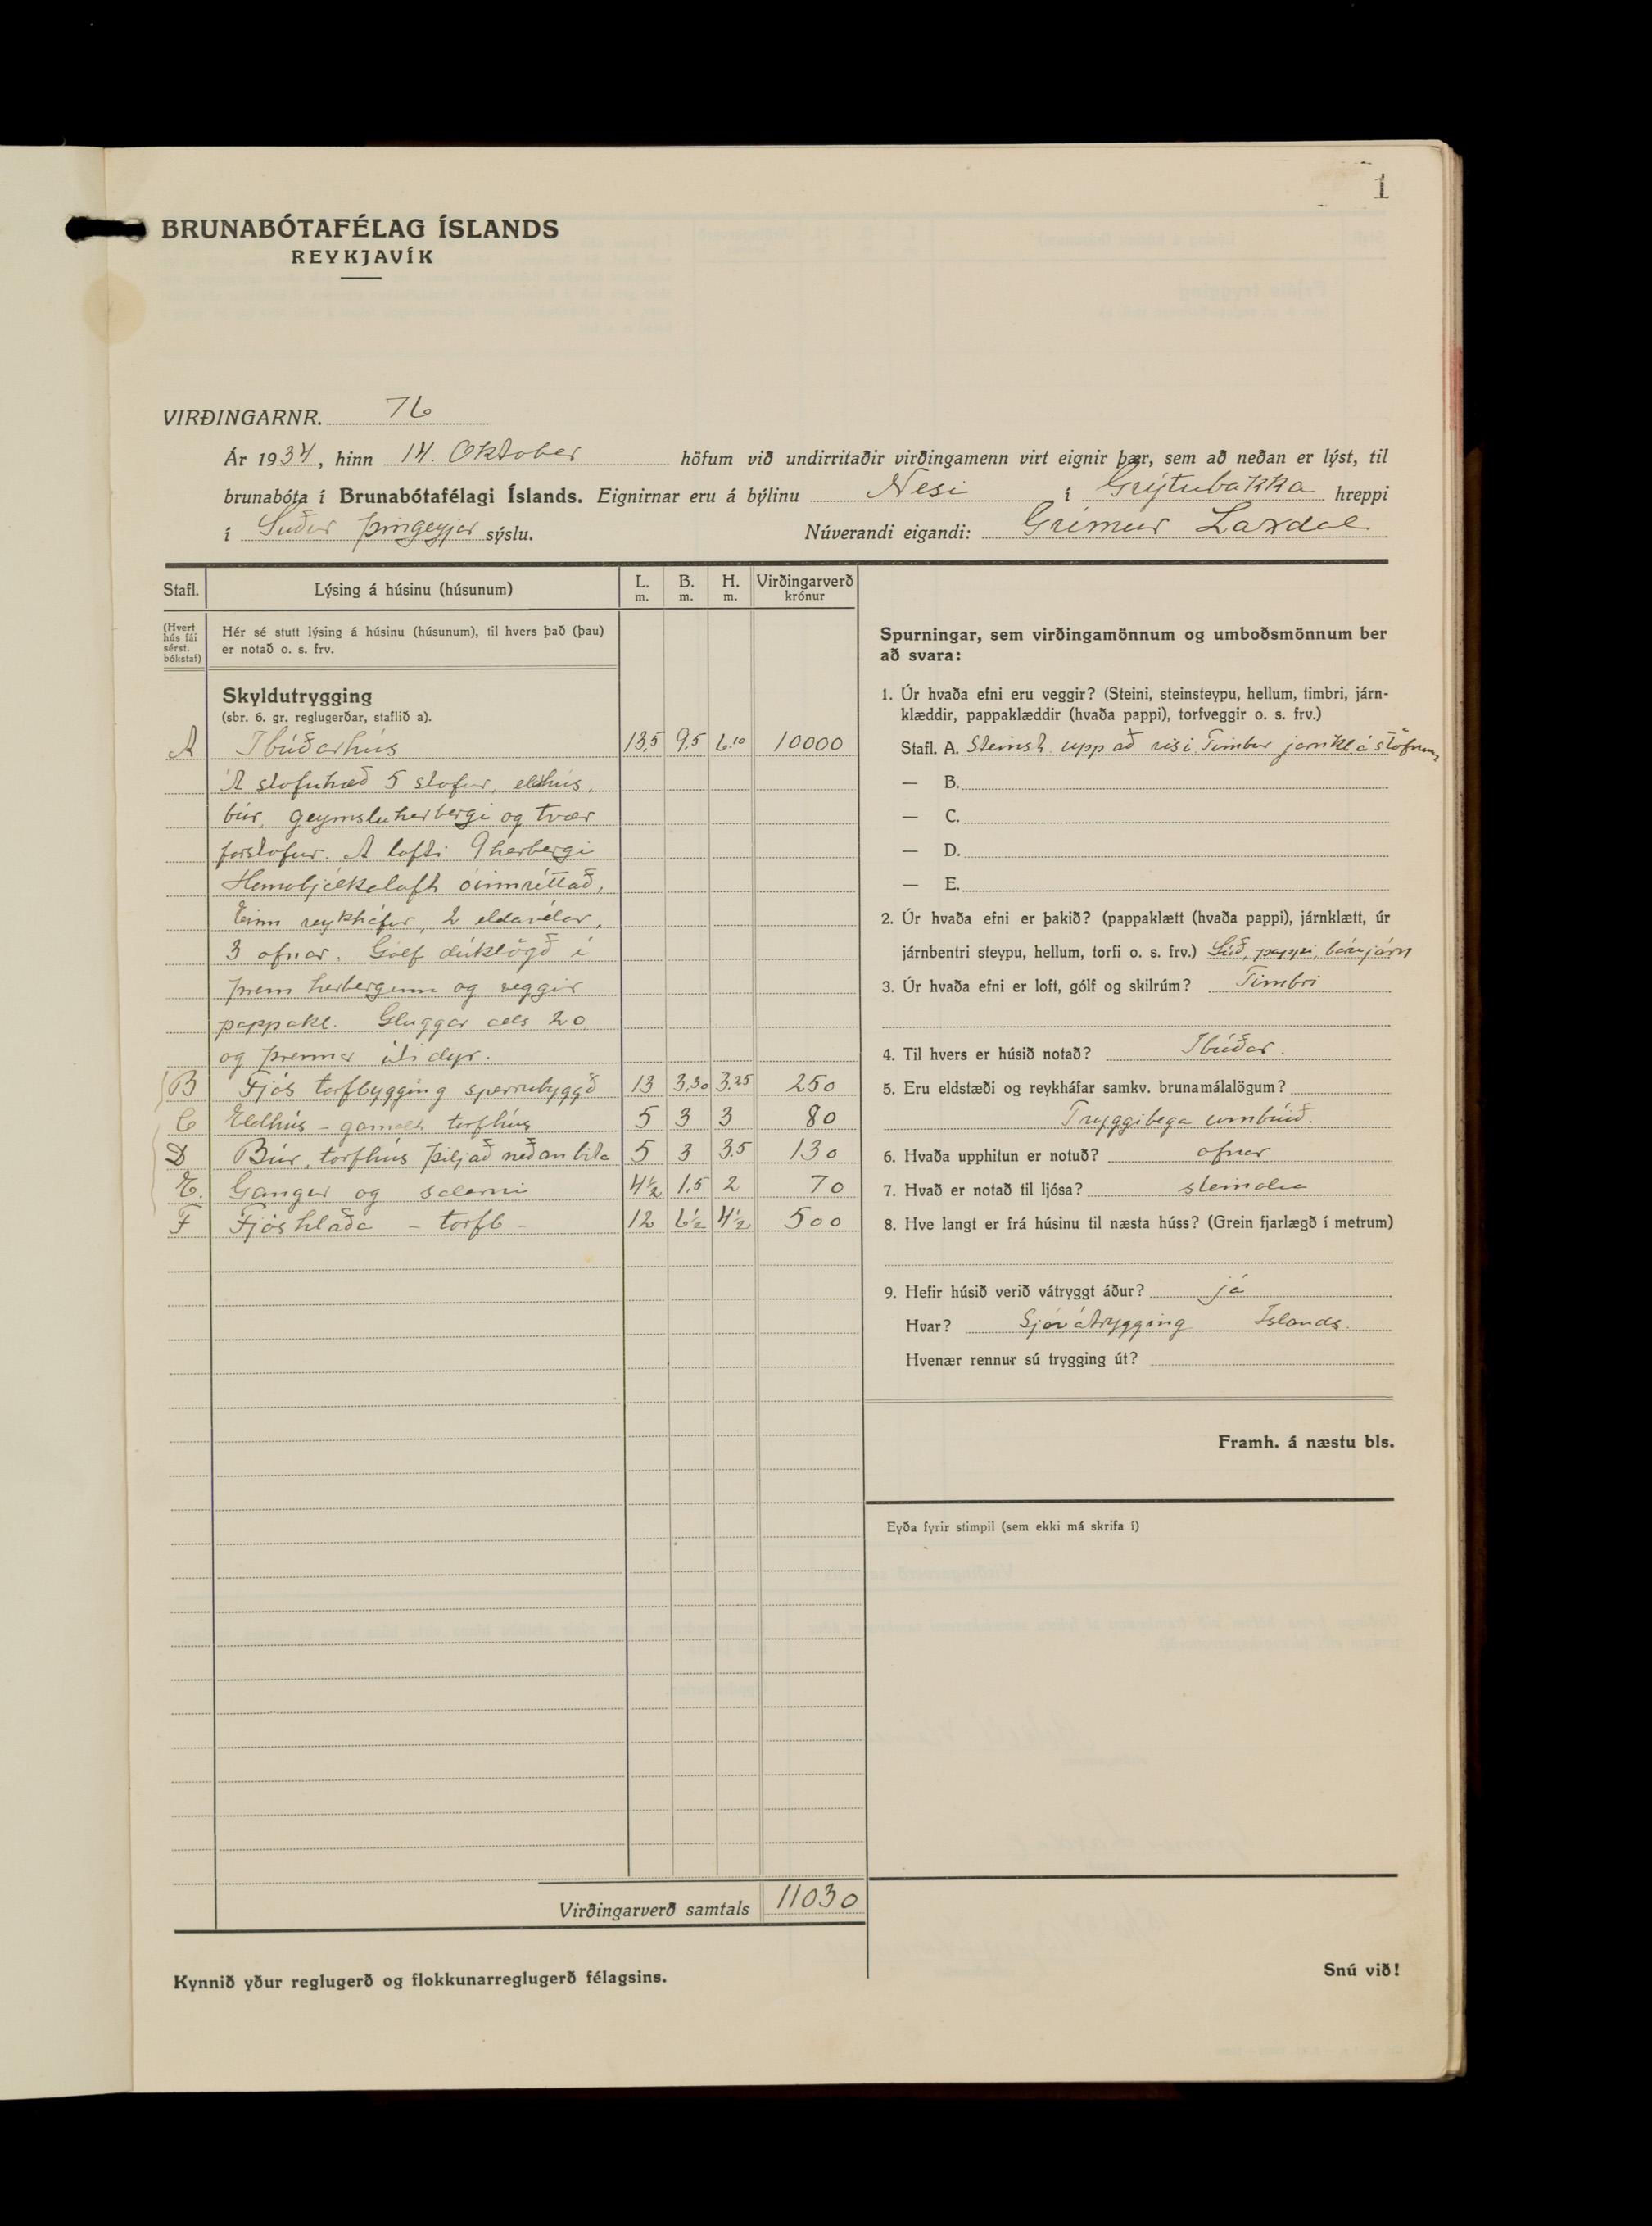 1
BRUNABÓTAFÉLAG ÍSLANDS
REYKJAVÍK
VIRÐINGARNR. 76
Ár 1934, hinn 14. Oktober höfum við undirritaðir virðingamenn virt eignir þær, sem að neðan er lýst, til
brunabóta í Brunabótafélagi Íslands. Eignirnar eru á býlinu Nesi í Grýtubakka hreppi
í Suður Þingeyjar sýslu. Núverandi eigandi: Grímur Laxdal
Stafl. Lýsing á húsinu (húsunum) L. m. B. m. H. m. Virðingarverð krónur
(Hvert hús fái sérst. bókstaf)
Hér sé stutt lýsing á húsinu (húsunum), til hvers það (þau)
er notað o. s. frv.
Skyldutrygging
(sbr. 6. gr. reglugerðar, staflið a).
A Íbúðarhús 13,5 9,5 6.10 10000
Á stofuhæð 5 stofur, eldhús,
búr, geymsluherbergi og tvær
forstofur. Á lofti 9 herbergi
Hanabjálkaloft óinnréttað,
Einn reykháfur, 2 eldavélar,
3 ofnar. Gólf dúklögð í
þrem herbergjum og veggir
pappakl. Gluggar alls 20
og þrennar úti dyr.
B Fjós torfbygging sperrubyggð 13 3,30 3,25 250
C Eldhús - gamalt torfhús 5 3 3 80
D Búr, torfhús þiljað neðan bita 5 3 3.5 130
E. Gangur og salerni 4½ 1,5 2 70
F Fjóshlaða - torfb - 12 6½ 4½ 500
Virðingarverð samtals 11030
Kynnið yður reglugerð og flokkunarreglugerð félagsins.
Spurningar, sem virðingamönnum og umboðsmönnum ber
að svara:
1. Úr hvaða efni eru veggir? (Steini, steinsteypu, hellum, timbri, járn-
klæddir, pappaklæddir (hvaða pappi), torfveggir o. s. frv.)
Stafl. A. Steinst. upp að risi Timbur járnkl á stöfnum
— B.
— C.
— D.
— E.
2. Úr hvaða efni er þakið? (pappaklætt (hvaða pappi), járnklætt, úr
járnbentri steypu, hellum, torfi o. s. frv.) Súð, pappi, bárujárn
3. Úr hvaða efni er loft, gólf og skilrúm? Timbri
4. Til hvers er húsið notað? Íbúðar.
5. Eru eldstæði og reykháfar samkv. brunamálalögum?
Tryggilega umbúið.
6. Hvaða upphitun er notuð? ofnar
7. Hvað er notað til ljósa? steinolia
8. Hve langt er frá húsinu til næsta húss? (Grein fjarlægð í metrum)
9. Hefir húsið verið vátryggt áður? já
Hvar? Sjóvátrygging Íslands.
Hvenær rennur sú trygging út?
Framh. á næstu bls.
Eyða fyrir stimpil (sem ekki má skrifa í)
Snú við!